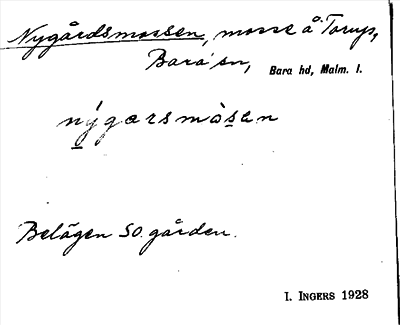 Nygårdsmossen, mosse å Torup,
Bara sn, Bara hd, Malm. l.
nýgarsmòsen
Belägen SO. gården.
I. INGERS 1928